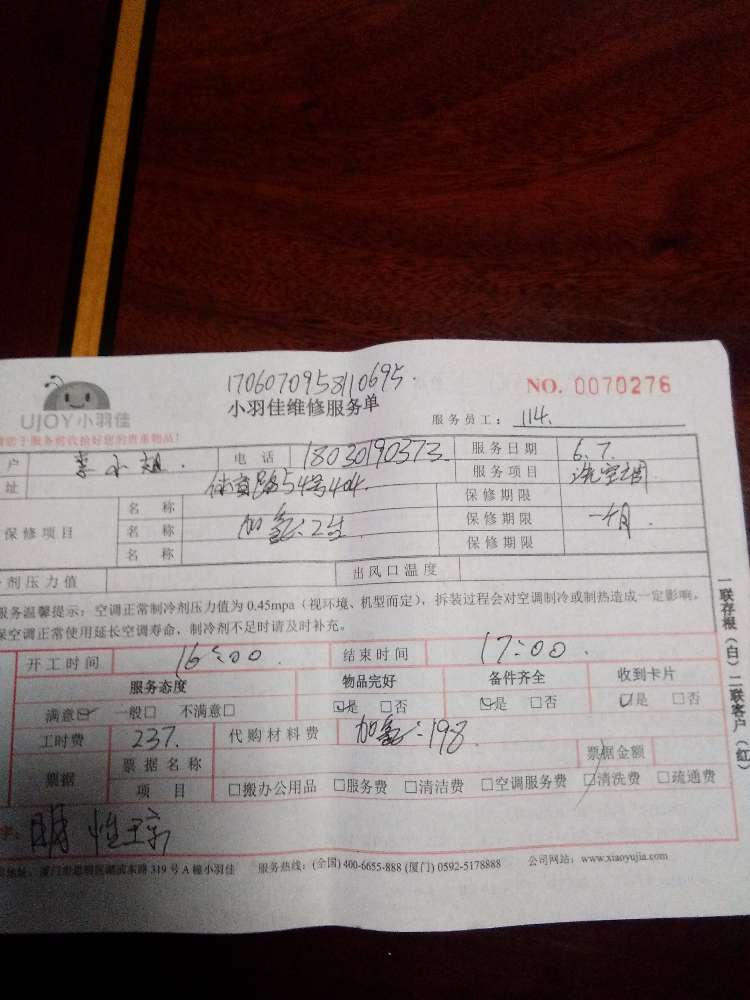 1706070958110695
UJOY小羽佳
小羽佳维修服务单
NO. 0070276
服务员工: 114.
请您于服务前收拾好您的贵重物品!
户 李小 电话 18030190373 服务日期 6.7.
址 体育路54号404. 服务项目 洗空调
保修项目 名称 保修期限
名称 加氟 保修期限 一个月.
名称 保修期限
剂压力值 出风口温度
服务温馨提示: 空调正常制冷剂压力值为 0.45mpa (视环境、机型而定), 拆装过程会对空调制冷或制热造成一定影响,
保空调正常使用延长空调寿命, 制冷剂不足时请及时补充。
开工时间 16:00. 结束时间 17:00.
服务态度 物品完好 备件齐全 收到卡片
满意☑ 一般□ 不满意□ ☑是 □否 ☑是 □否 ☑是 □否
工时费 237. 代购材料费 加氟:198
票据 票据名称 票据金额
项目 □搬办公用品 □服务费 □清洁费 □空调服务费 ☑清洗费 □疏通费
地址: 厦门市思明区湖滨东路 319 号 A 幢小羽佳 服务热线: (全国) 400-6655-888 (厦门) 0592-5178888 公司网站: www.xiaoyujia.com
一联存根(白) 二联客户(红)